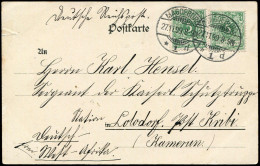 Deutsche Reichspost.
Postkarte
HAMBURG
1 d
1 d
An
Herrn Karl Hensel
Sergeant der Kaiserl. Schutztruppe
Station
Lolodorf, Post Kribi
Deutsch
West-Afrika
(Kamerun)